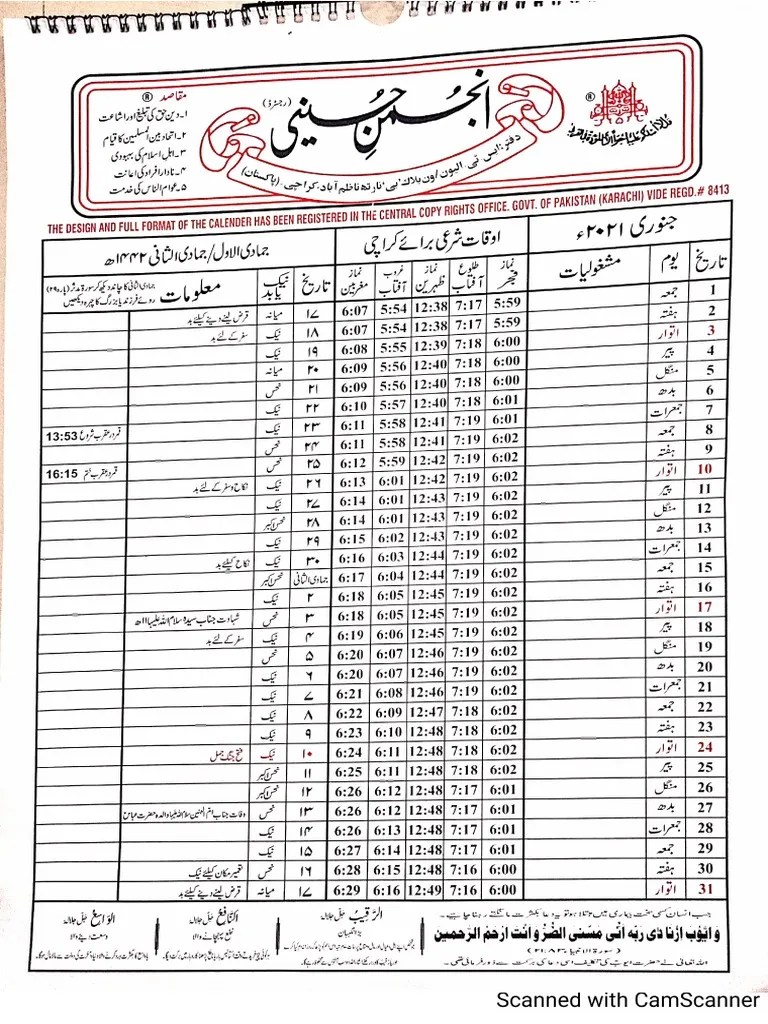 انجمن حسینی (رجسٹرڈ)
مقاصد ®
۱۔ دین حق کی تبلیغ اور اشاعت
۲۔ اتحاد بین المسلمین کا قیام
۳۔ اہل اسلام کی بہبودی
۴۔ نادار افراد کی اعانت
۵۔ عوام الناس کی خدمت
®
دفتر: ایس ٹی الیون اون بلاک بی۔ نارتھ ناظم آباد، کراچی۔ (پاکستان)
THE DESIGN AND FULL FORMAT OF THE CALENDER HAS BEEN REGISTERED IN THE CENTRAL COPY RIGHTS OFFICE. GOVT. OF PAKISTAN (KARACHI) VIDE REGD.# 8413
جنوری ۲۰۲۱ء اوقات شرعی برائے کراچی جمادی الاول/ جمادی الثانی ۱۴۴۲ھ
تاریخ یوم مشغولیات نماز فجر طلوع آفتاب نماز ظہرین غروب آفتاب نماز مغربین تاریخ نیک یا بد معلومات
جمادی الثانی کا چاند دیکھ کر سورۃ مدثر (پارہ ۲۹)
روئے فرزند یا بزرگ کا چہرہ دیکھیں
1 جمعہ 5:59 7:17 12:38 5:54 6:07 ۱۷ میانہ قرض لینے دینے کیلئے بد
2 ہفتہ 5:59 7:17 12:38 5:54 6:07 ۱۸ نیک سفر کے لئے بد
3 اتوار 6:00 7:18 12:39 5:55 6:08 ۱۹ نیک
4 پیر 6:00 7:18 12:40 5:56 6:09 ۲۰ میانہ
5 منگل 6:00 7:18 12:40 5:56 6:09 ۲۱ نحس
6 بدھ 6:01 7:18 12:40 5:57 6:10 ۲۲ نیک
7 جمعرات 6:01 7:19 12:41 5:58 6:11 ۲۳ نیک قمر در عقرب شروع 13:53
8 جمعہ 6:02 7:19 12:41 5:58 6:11 ۲۴ نحس
9 ہفتہ 6:02 7:19 12:42 5:59 6:12 ۲۵ نحس قمر در عقرب ختم 16:15
10 اتوار 6:02 7:19 12:42 6:01 6:13 ۲۶ نیک نکاح و سفر کے لئے بد
11 پیر 6:02 7:19 12:43 6:01 6:14 ۲۷ نیک
12 منگل 6:02 7:19 12:43 6:01 6:14 ۲۸ نحس اکبر
13 بدھ 6:02 7:19 12:43 6:02 6:15 ۲۹ نیک
14 جمعرات 6:02 7:19 12:44 6:03 6:16 ۳۰ نیک نکاح کیلئے بد
15 جمعہ 6:02 7:19 12:44 6:04 6:17 جمادی الثانی نحس اکبر
16 ہفتہ 6:02 7:19 12:45 6:05 6:18 ۲ نیک
17 اتوار 6:02 7:19 12:45 6:05 6:18 ۳ نحس شہادت جناب سیدہ سلام اللہ علیہا ۱۱ھ
18 پیر 6:02 7:19 12:45 6:06 6:19 ۴ نیک سفر کے لئے بد
19 منگل 6:02 7:19 12:46 6:07 6:20 ۵ نحس
20 بدھ 6:02 7:19 12:46 6:07 6:20 ۶ نیک
21 جمعرات 6:02 7:19 12:46 6:08 6:21 ۷ نیک
22 جمعہ 6:02 7:18 12:47 6:09 6:22 ۸ نیک
23 ہفتہ 6:02 7:18 12:48 6:10 6:23 ۹ نیک
24 اتوار 6:02 7:18 12:48 6:11 6:24 ۱۰ نیک فتح جنگ جمل
25 پیر 6:02 7:18 12:48 6:11 6:25 ۱۱ نحس اکبر
26 منگل 6:01 7:17 12:48 6:12 6:26 ۱۲ نحس اکبر
27 بدھ 6:01 7:17 12:48 6:12 6:26 ۱۳ نحس وفات جناب ام البنین سلام اللہ علیہا والدہ حضرت عباس
28 جمعرات 6:01 7:17 12:48 6:13 6:26 ۱۴ نیک
29 جمعہ 6:01 7:17 12:48 6:14 6:27 ۱۵ نیک
30 ہفتہ 6:00 7:16 12:48 6:15 6:28 ۱۶ نحس تعمیر مکان کیلئے نیک
31 اتوار 6:00 7:16 12:49 6:16 6:29 ۱۷ میانہ قرض لینے دینے کیلئے بد
جب انسان کسی سخت بیماری میں مبتلا ہو تو یہ دعا بکثرت مانگتے رہنا چاہیے۔
وَاَیُّوبَ اِذْ نَادٰی رَبَّهٗ اَنِّی مَسَّنِیَ الضُّرُّ وَاَنْتَ اَرْحَمُ الرَّاحِمِیْنَ
اللہ تعالیٰ نے حضرت ایوب کی تکلیف اسی دعا کی برکت سے دور فرمائی تھی۔
الرَّقِیْبُ جل جلالہ
بڑا نگہبان
النَّافِعُ جل جلالہ
نفع پہنچانے والا
الْوَاسِعُ جل جلالہ
وسعت دینے والا
Scanned with CamScanner